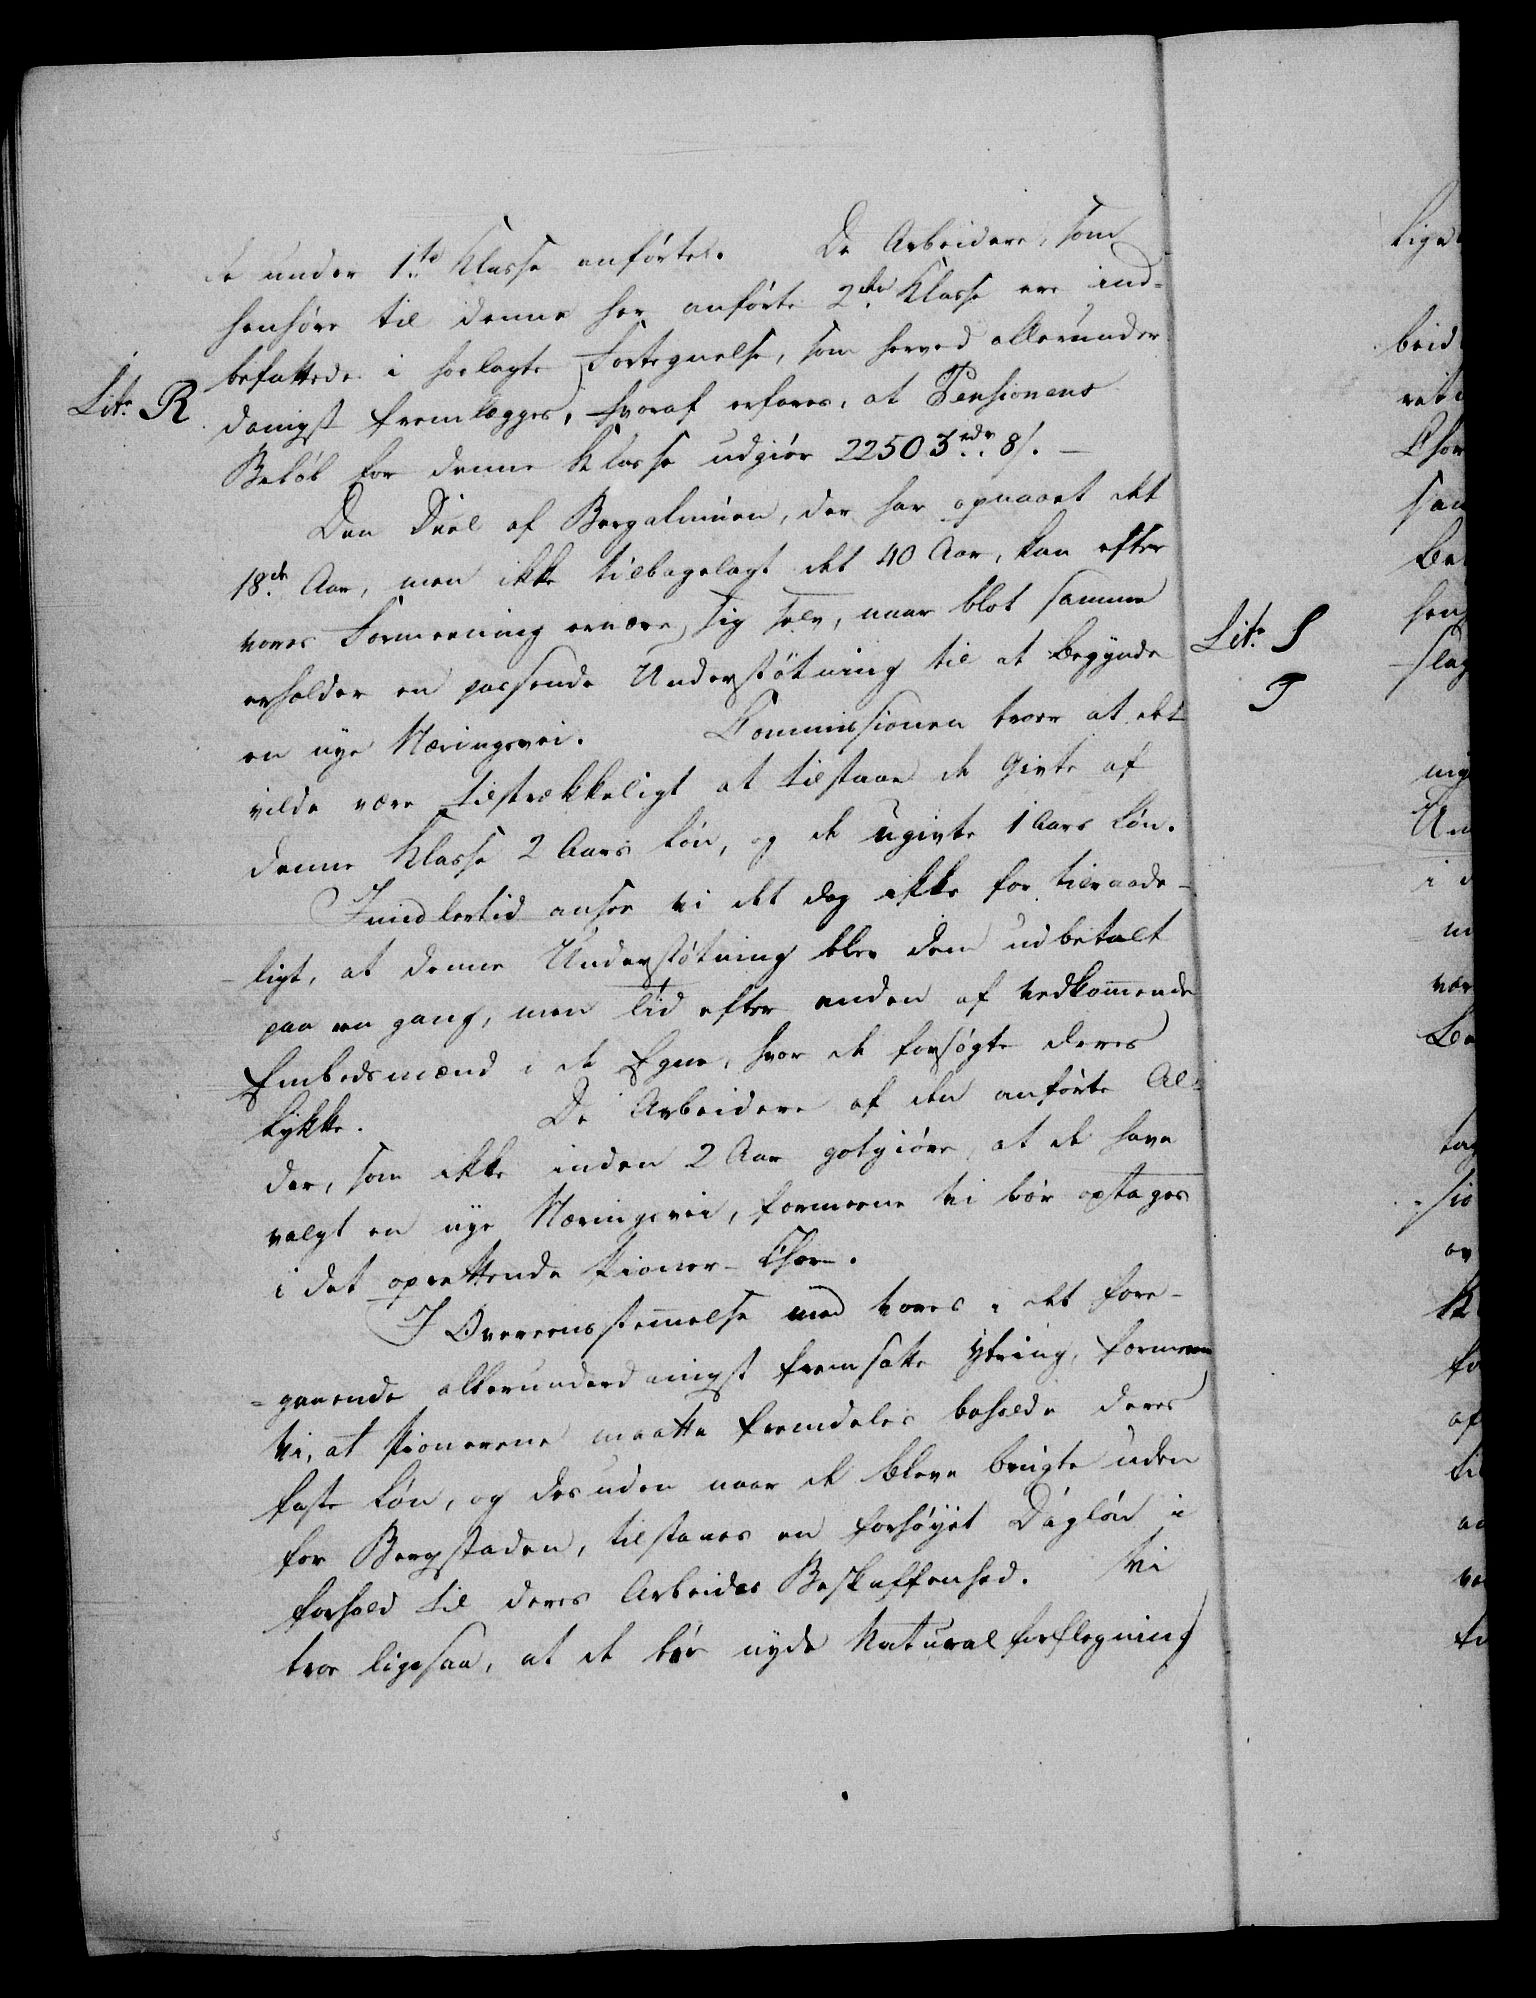 de under 1ste Klasse anførte. De Arbeidere, som
henhøre til denne her anførte 2den Klasse ere ind-
befattede i hoslagte Fortegnelse, som herved allerunder
Litr. R
danigst fremlægges, hvoraf erfares, at Pensionens
Beløb for denne Klasse udgiør 22503 rdr 8 s. —
Den Deel af Bergalmuen, der har opnaaet det
18de Aar, men ikke tilbagelagt det 40 Aar, kan efter
vores Formeening ernære sig selv, naar blot samme
erholder en passende Understøtning til at begynde
en nye Næringsvei. Commissionen troer at det
vilde være tilstrækkeligt at tilstaae de Givte af
denne Klasse 2 Aars Løn, og de ugivte 1 Aars Løn.
Imidlertid ansee vi det dog ikke for tilraade-
-ligt, at denne Understøtning blev dem udbetalt
paa en gang, men tid efter anden af vedkommende
Embedsmænd i de Egne, hvor de forsøgte deres
Lykke. De Arbeidere af den anførte Al-
der, som ikke inden 2 Aar godgiøre, at de have
valgt en nye Næringsvei, formeene vi bør optages
i det oprettende Pioneer-Chor.
I Overeensstemmelse med vores i det fore-
-gaaende allerunderdanigst fremsatte Ytring, formeene
vi, at Pionererne maatte fremdeles beholde deres
faste Løn, og desuden naar de bleve brugte uden
for Bergstaden, tilstaaes en forhøyet Dagløn i
forhold til deres Arbeides Beskaffenhed. Vi
troe ligesaa, at de bør nyde Naturalforflegning
Litr. S
T
lige
beid
ret
Chor
sam
Be
hen
slag
ny
Un
i d
vær
tag
sio
K
fo
af
til